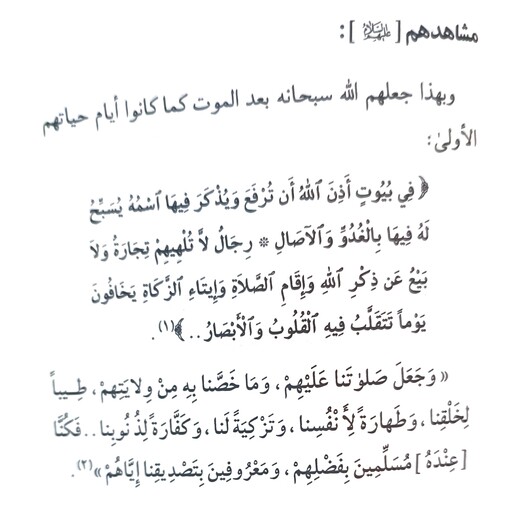 مشاهدهم [ عليهم السلام ] :
وبهذا جعلهم الله سبحانه بعد الموت كما كانوا أيام حياتهم
الأولىٰ :
﴿ فِي بُيُوتٍ أَذِنَ ٱللهُ أَن تُرْفَعَ وَيُذْكَرَ فِيهَا ٱسْمُهُ يُسَبِّحُ
لَهُ فِيهَا بِالْغُدُوِّ وَٱلْآصَالِ * رِجَالٌ لاَّ تُلْهِيهِمْ تِجَارَةٌ وَلاَ
بَيْعٌ عَن ذِكْرِ ٱللهِ وَإِقَامِ ٱلصَّلاَةِ وَإِيتَاءِ ٱلزَّكَاةِ يَخَافُونَ
يَوْماً تَتَقَلَّبُ فِيهِ ٱلْقُلُوبُ وَٱلْأَبْصَارُ .. ﴾(١).
« وَجَعَلَ صَلوٰتَنا عَلَيْهِمْ ، وَمَا خَصَّنا بِهِ مِنْ وِلايَتِهِمْ ، طِـيباً
لِخَلْقِنا ، وَطَهارَةً لِأَنْفُسِنا ، وَتَزْكِيَةً لَنا ، وَكَفَّارَةً لِذُنُوبِنا .. فَكُنَّا
[ عِنْدَهُ ] مُسَلِّمِينَ بِفَضْلِهِمْ ، وَمَعْرُوفِينَ بِتَصْدِيقِنا إِيَّاهُمْ »(٢).